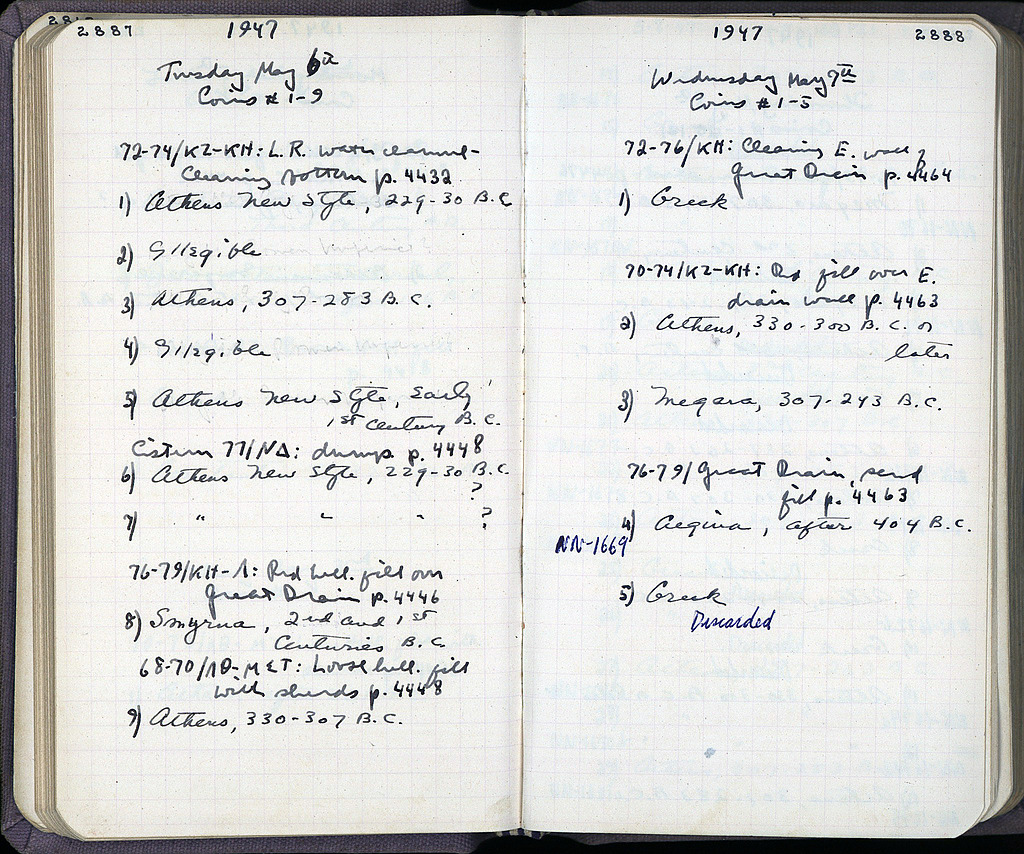 2887
1947
Tuesday May 6th
Coins # 1-9
72-74/ΚΖ-ΚΗ: L.R. water channel-
Cleaning bottom p. 4432
1) Athens New Style, 229-30 B.C.
2) Illegible
3) Athens, 307-283 B.C.
4) Illegible
5) Athens New Style, Early
1st Century B.C.
Cistern 77/ΝΔ: dump p. 4448
6) Athens New Style, 229-30 B.C.
?
7) " " " ?
76-79/ΚΗ-Λ: Red hell. fill over
Great Drain p. 4446
8) Smyrna, 2nd and 1st
Centuries B.C.
68-70/ΛΘ-Μ ΕΤ: Loose hell. fill
with sherds p. 4448
9) Athens, 330-307 B.C.
1947
2888
Wednesday May 7th
Coins # 1-5
72-76/ΚΗ: Cleaning E. wall of
Great Drain p. 4464
1) Greek
70-74/ΚΖ-ΚΗ: Red fill over E.
drain wall p. 4463
2) Athens, 330-300 B.C. or
later
3) Megara, 307-243 B.C.
76-79/Great Drain, sand
fill p. 4463
4) Aegina, after 404 B.C.
NN-1669
5) Greek
Discarded